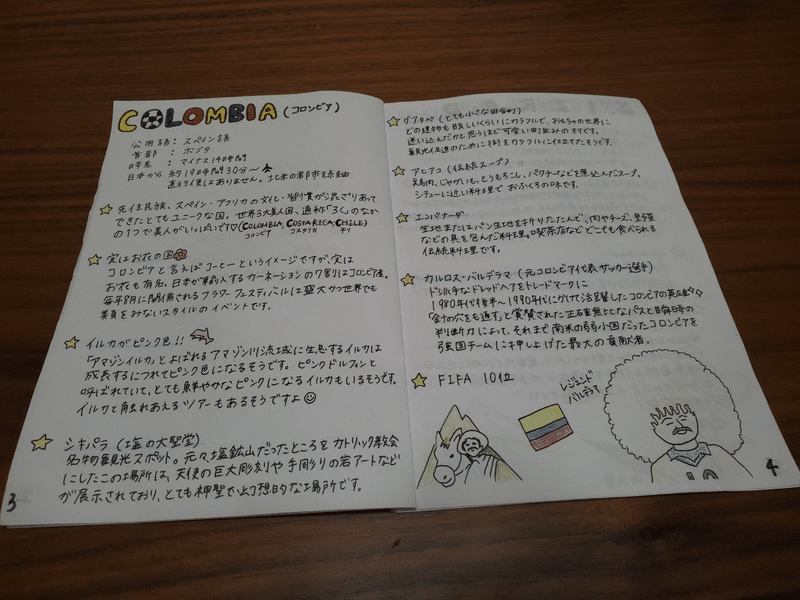 COLOMBIA (コロンビア)
公用語：スペイン語
首都：ボゴタ
時差：マイナス14時間
日本から 約19時間30分〜
直行便はありません。北米の都市を経由
先住民族、スペイン・アフリカの文化・習慣が混ざりあって
できたとてもユニークな国。世界3大美人国、通称「3C」のなか
の1つで美人がいっぱいです♡(COLOMBIA, COSTARICA, CHILE)
コロンビア コスタリカ チリ
実はお花の国
コロンビアと言えばコーヒーというイメージですが、実は
お花も有名。日本が輸入するカーネーションの7割はコロンビア産。
毎年8月に開催されるフラワーフェスティバルは盛大かつ世界でも
類をみないスタイルのイベントです。
イルカがピンク色!!
「アマゾンイルカ」とよばれるアマゾン川流域に生息するイルカは
成長するにつれてピンク色になるそうです。ピンクドルフィンと
呼ばれていて、とても鮮やかなピンクになるイルカもいるそうです。
イルカと触れあえるツアーもあるそうですよ☺
シパキラ (塩の大聖堂)
名物観光スポット。元々塩鉱山だったところをカトリック教会
にしたこの場所は、天使の巨大彫刻や手彫りの岩アートなど
が展示されており、とても神聖で幻想的な場所です。
3
グアタペ (とても小さな田舎町)
どの建物も眩しいくらいにカラフルで、おもちゃの世界に
迷い込んだかと思うほど可愛い町並みの村です。
観光促進のために街をカラフルに仕立てたそうです。
アヒアコ (伝統スープ)
鶏肉、じゃがいも、とうもろこし、パクチーなどを煮込んだスープ。
シチューに近い料理でおふくろの味です。
エンパナーダ
生地またはパン生地を折りたたんで、肉やチーズ、野菜
などの具を包んだ料理。喫茶店などどこでも食べられる
伝統料理です。
カルロス・バルデラマ (元コロンビア代表サッカー選手)
ド派手なドレッドヘアをトレードマークに
1980年代後半〜1990年代にかけて活躍したコロンビアの英雄
「針の穴をも通す」と賞賛された正確無比なパスと瞬時の
判断力によって、それまで南米の弱小国だったコロンビアを
強国チームに押し上げた最大の貢献者。
FIFA 10位
レジェンド
バルデラマ
10
4